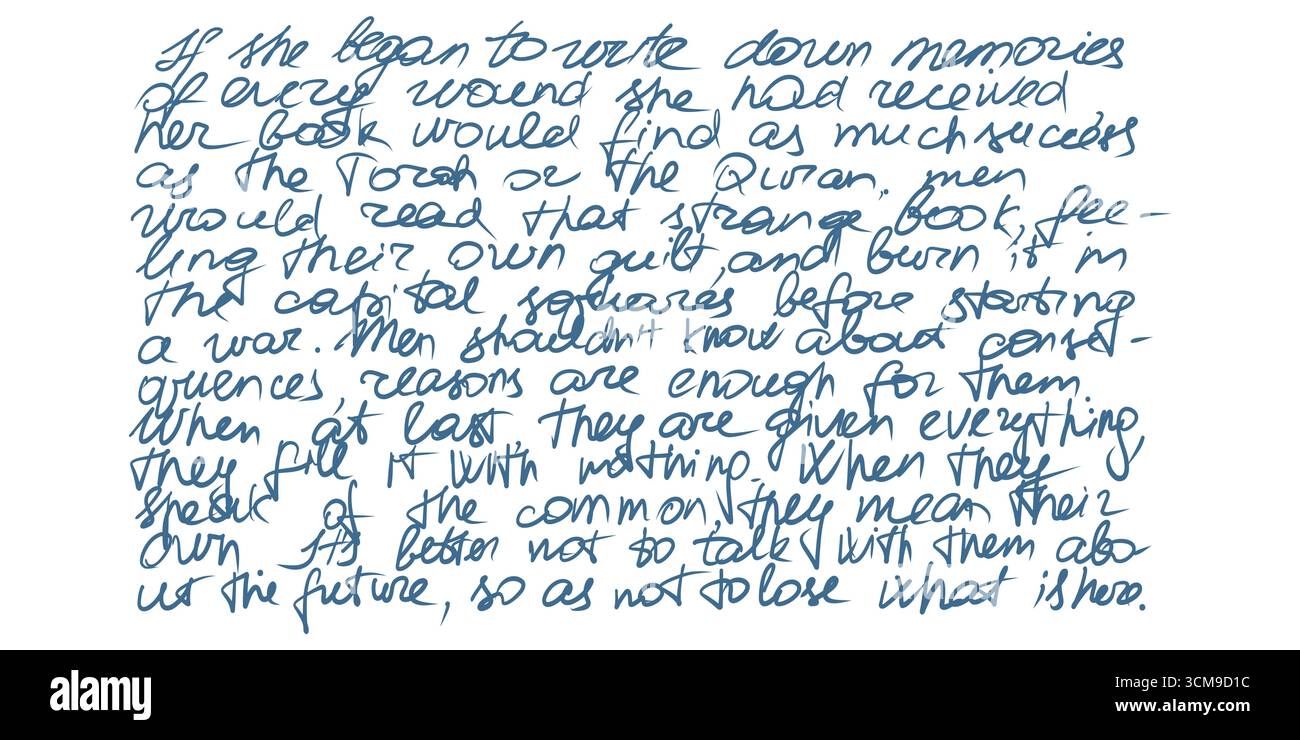 If she began to write down memories
of every wound she had received
her book would find as much success
as the Torah or the Quran. men
would read that strange book, fee-
ling their own guilt, and burn it in
the capital squares before starting
a war. Men shouldn't know about conse-
quences, reasons are enough for them.
When, at last, they are given everything,
they fill it with nothing. When they
speak of the common, they mean their
own. It's better not to talk with them abo-
ut the future, so as not to lose what is here.
alamy
Image ID: 3CM9D1C
www.alamy.com